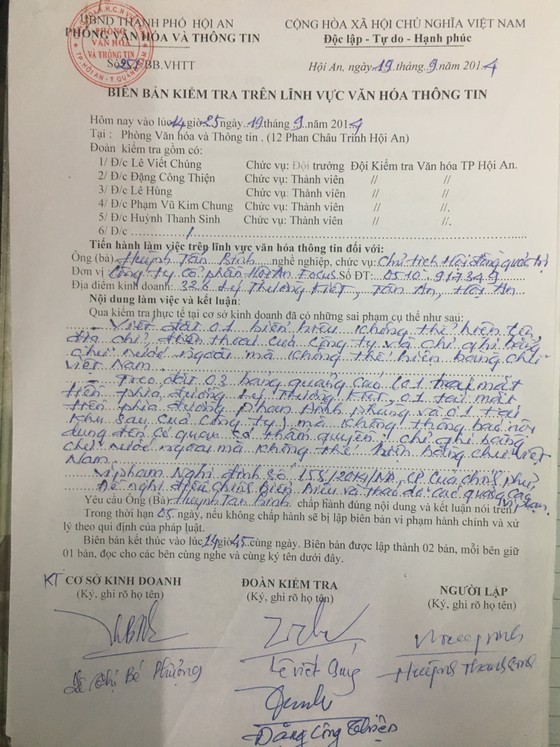 UBND THÀNH PHỐ HỘI AN
PHÒNG VĂN HÓA VÀ THÔNG TIN
CỘNG HÒA XÃ HỘI CHỦ NGHĨA VIỆT NAM
Độc lập - Tự do - Hạnh phúc
BB.VHTT
Hội An, ngày 19 tháng 9 năm 2014
BIÊN BẢN KIỂM TRA TRÊN LĨNH VỰC VĂN HÓA THÔNG TIN
Hôm nay vào lúc 14 giờ 25 ngày 19 tháng 9 năm 2014
Tại : Phòng Văn hóa và Thông tin . (12 Phan Châu Trinh Hội An)
Đoàn kiểm tra gồm có:
1/ Đ/c Lê Viết Chủng Chức vụ: Đội trưởng Đội Kiểm tra Văn hóa TP Hội An.
2/ Đ/c Đặng Công Thiện Chức vụ: Thành viên // //
3/ Đ/c Lê Hùng Chức vụ: Thành viên // //
4/ Đ/c Phạm Vũ Kim Chung Chức vụ: Thành viên // //
5/ Đ/c Huỳnh Thanh Sinh Chức vụ: Thành viên // //
6/ Đ/c
Tiến hành làm việc trên lĩnh vực văn hóa thông tin đối với:
Ông (bà) Huỳnh Tấn Bình nghề nghiệp, chức vụ: Chủ tịch Hội đồng quản trị
Đơn vị Công ty cổ phần Hội An Focus Số ĐT: 0510.
Địa điểm kinh doanh: 326 Lý Thường Kiệt, Tân An, Hội An
Nội dung làm việc và kết luận:
Qua kiểm tra thực tế tại cơ sở kinh doanh đã có những sai phạm cụ thể như sau:
- Viết đặt 01 biển hiệu không thể hiện tên
địa chỉ, điện thoại của Công ty và chỉ ghi bằng
chữ nước ngoài mà không thể hiện bằng chữ
Việt Nam
- Treo đặt 03 bảng quảng cáo (01 tại mặt
tiền phía đường Lý Thường Kiệt, 01 tại mặt
tiền phía đường Phan Đình Phùng và 01 tại
khu sau của Công ty) mà không thông báo nội
dung đến cơ quan có thẩm quyền, chỉ ghi bằng
chữ nước ngoài mà không thể hiện bằng chữ Việt
Nam.
Vi phạm Nghị định số 158/2013/NĐ.CP của Chính phủ
Đề nghị điều chỉnh biển hiệu và tháo dỡ các quảng cáo vi phạm.
Yêu cầu Ông (Bà) Huỳnh Tấn Bình chấp hành đúng nội dung và kết luận nói trên.
Trong thời hạn 05 ngày, nếu không chấp hành sẽ bị lập biên bản vi phạm hành chính và xử
lý theo qui định của pháp luật.
Biên bản kết thúc vào lúc 14 giờ 45 cùng ngày. Biên bản được lập thành 02 bản, mỗi bên giữ
01 bản, đọc cho các bên cùng nghe và cùng ký tên dưới đây.
KT CƠ SỞ KINH DOANH
(Ký, ghi rõ họ tên)
ĐOÀN KIỂM TRA
(Ký, ghi rõ họ tên)
NGƯỜI LẬP
(Ký, ghi rõ họ tên)
Lê Thị Bé Phượng
Lê Viết Chủng
Huỳnh Thanh Sinh
Đặng Công Thiện